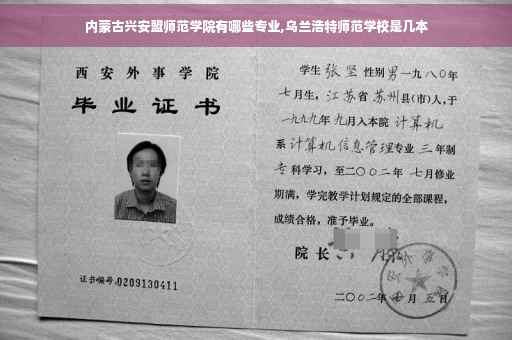 内蒙古兴安盟师范学院有哪些专业,乌兰浩特师范学校是几本
西安外事学院
毕业证书
证书编号:0209130411
学生 张坚 性别 男 一九八〇年
七月生, 江苏省 苏州 县(市)人,于
一九九九年 九月入本院 计算机
系 计算机信息管理 专业 三 年制
专 科学习, 至二〇〇二年 七月修业
期满, 学完教学计划规定的全部课程,
成绩合格, 准予毕业。
院长
二〇〇二年 月 五 日